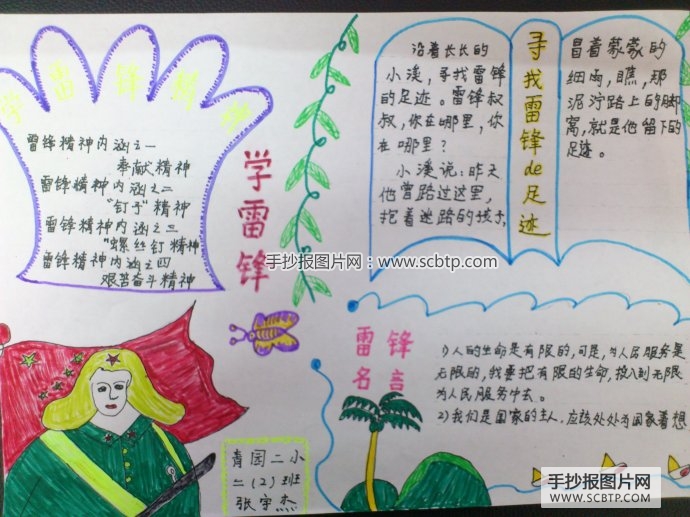 学雷锋精神
雷锋精神内涵之一
奉献精神
雷锋精神内涵之二
"钉子"精神
雷锋精神内涵之三
"螺丝钉精神
雷锋精神内涵之四
艰苦奋斗精神
学雷锋
沿着长长的
小溪,寻找雷锋
的足迹。雷锋叔
叔,你在哪里,你
在哪里?
小溪说:昨天
他曾路过这里,
抱着迷路的孩子,
寻找雷锋de足迹
冒着蒙蒙的
细雨,瞧,那
泥泞路上的脚
窝,就是他留下的
足迹。
手抄报图片网:www.scbtp.com
雷锋
名言
1)人的生命是有限的,可是,为人民服务是
无限的,我要把有限的生命,投入到无限
为人民服务中去。
2)我们是国家的主人,应该处处为国家着想
青园二小
二(2)班
张宇杰
手抄报图片网
WWW.SCBTP.COM